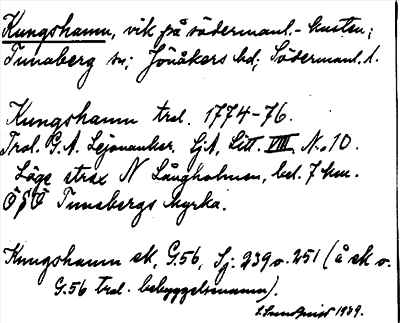 Kungshamn, vik på södermanl.-kusten;
Tunaberg sn; Jönåkers hd; Södermanl. l.
Kungshamn trol. 1774-76.
Trol. G. A. Lejonanker, Sj A, Litt. VIII No 10.
Läge strax N Långholmen, bel. 7 km.
ÖSÖ Tunabergs kyrka.
Kungshamn ek. G.56, Sj: 239 o. 251 (å ek o.
G.56 trol. bebyggelsenamn).
1939.